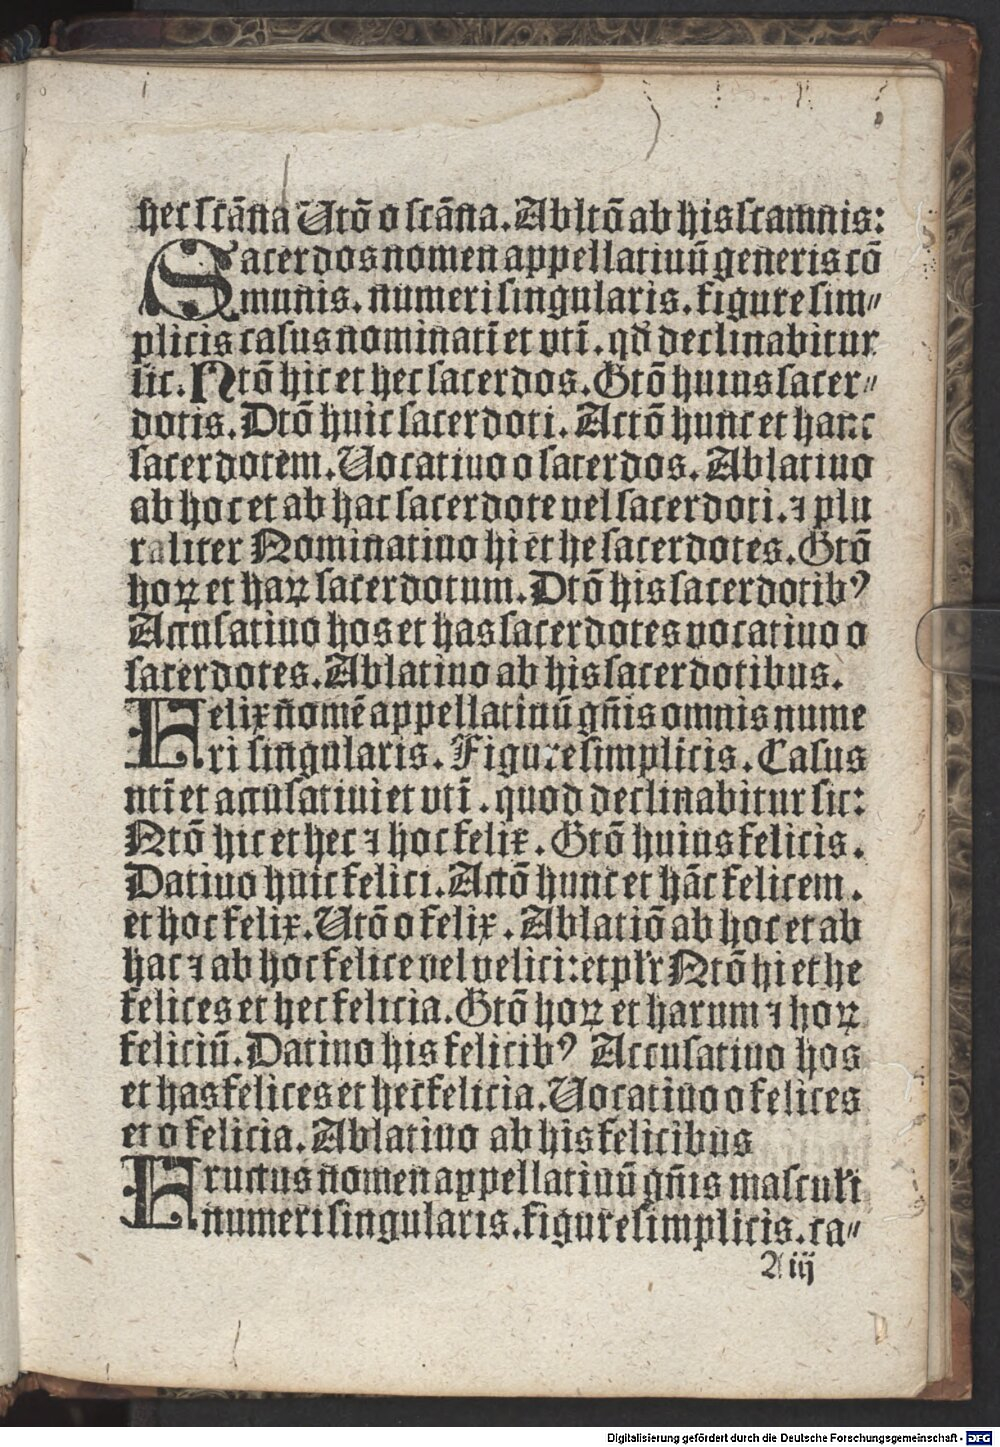 hec scāna Utō o scāna. Abltō ab his scamnis:
Sacerdos nomen appellatiuū generis cō
munis. numeri singularis. figure sim⸗
plicis casus nominatī et vtī. qđ declinabitur
sic. Ntō hic et hec sacerdos. Gtō huius sacer⸗
dotis. Dtō huic sacerdoti. Actō hunc et hanc
sacerdotem. Uocatiuo o sacerdos. Ablatiuo
ab hoc et ab hac sacerdote vel sacerdoti. ⁊ plu
raliter Nominatiuo hi et he sacerdotes. Gtō
hoꝝ et haꝝ sacerdotum. Dtō his sacerdotibꝰ
Accusatiuo hos et has sacerdotes vocatiuo o
sacerdotes. Ablatiuo ab his sacerdotibus.
Felix nomē appellatiuū gñis omnis nume
ri singularis. Figure simplicis. Casus
ntī et accusatiui et vtī. quod declinabitur sic:
Ntō hic et hec ⁊ hoc felix. Gtō huius felicis.
Datiuo huic felici. Actō hunc et hāc felicem.
et hoc felix. Utō o felix. Ablatiō ab hoc et ab
hac ⁊ ab hoc felice vel velici: et pl̄r Ntō hi et he
felices et hec felicia. Gtō hoꝝ et harum ⁊ hoꝝ
feliciū. Datiuo his felicibꝰ Accusatiuo hos
et has felices et hec felicia. Uocatiuo o felices
et o felicia. Ablatiuo ab his felicibus
Fructus nomen appellatiuū gñis masculi
numeri singularis. figure simplicis. ca⸗
A iij
Digitalisierung gefördert durch die Deutsche Forschungsgemeinschaft - DFG